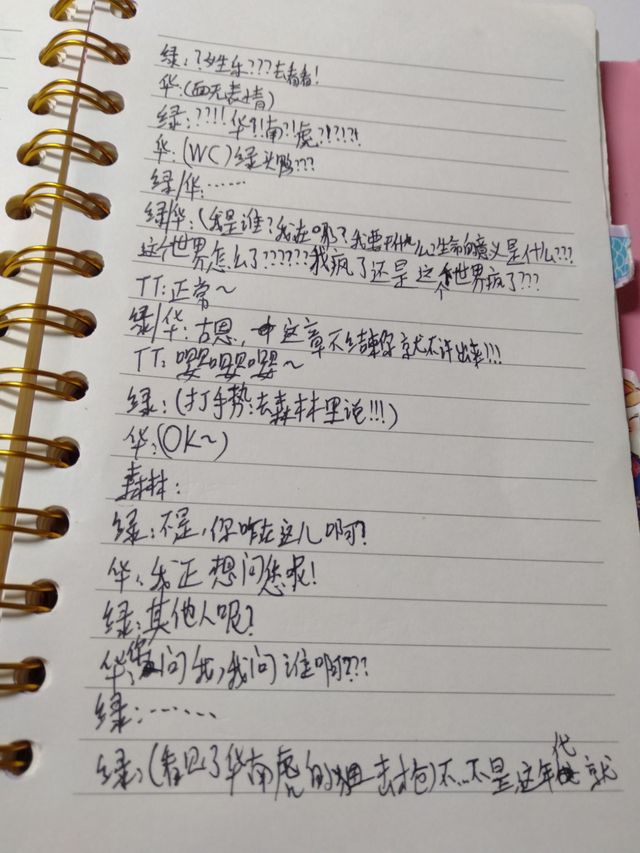 绿:？女生乐???去看看!
华:(面无表情)
绿:??!!华?!南?!虎?!?!?!
华:(WC)绿头鸭???
绿/华:……
绿/华:(我是谁?我在哪?我要干什么?生命的意义是什么???
这个世界怎么了??????我疯了还是这个世界疯了???
TT:正常~
绿/华:古恩,这章不结束你就不许出来!!!
TT:嘤嘤嘤~
绿:(打手势:去森林里说!!!)
华:(OK~)
森林:
绿:不是,你咋在这儿啊?
华:我正想问您呢!
绿:其他人呢?
华:你问我,我问谁啊???
绿:……
绿:(看见了华南虎的狙击枪)不..不是这年代就